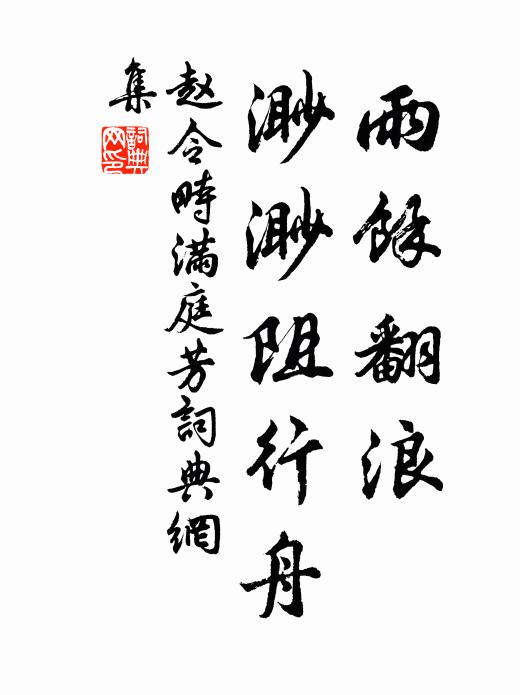 雨餘翻浪
渺渺阻行舟
赵令畤满庭芳詞典網
集
詞典網印